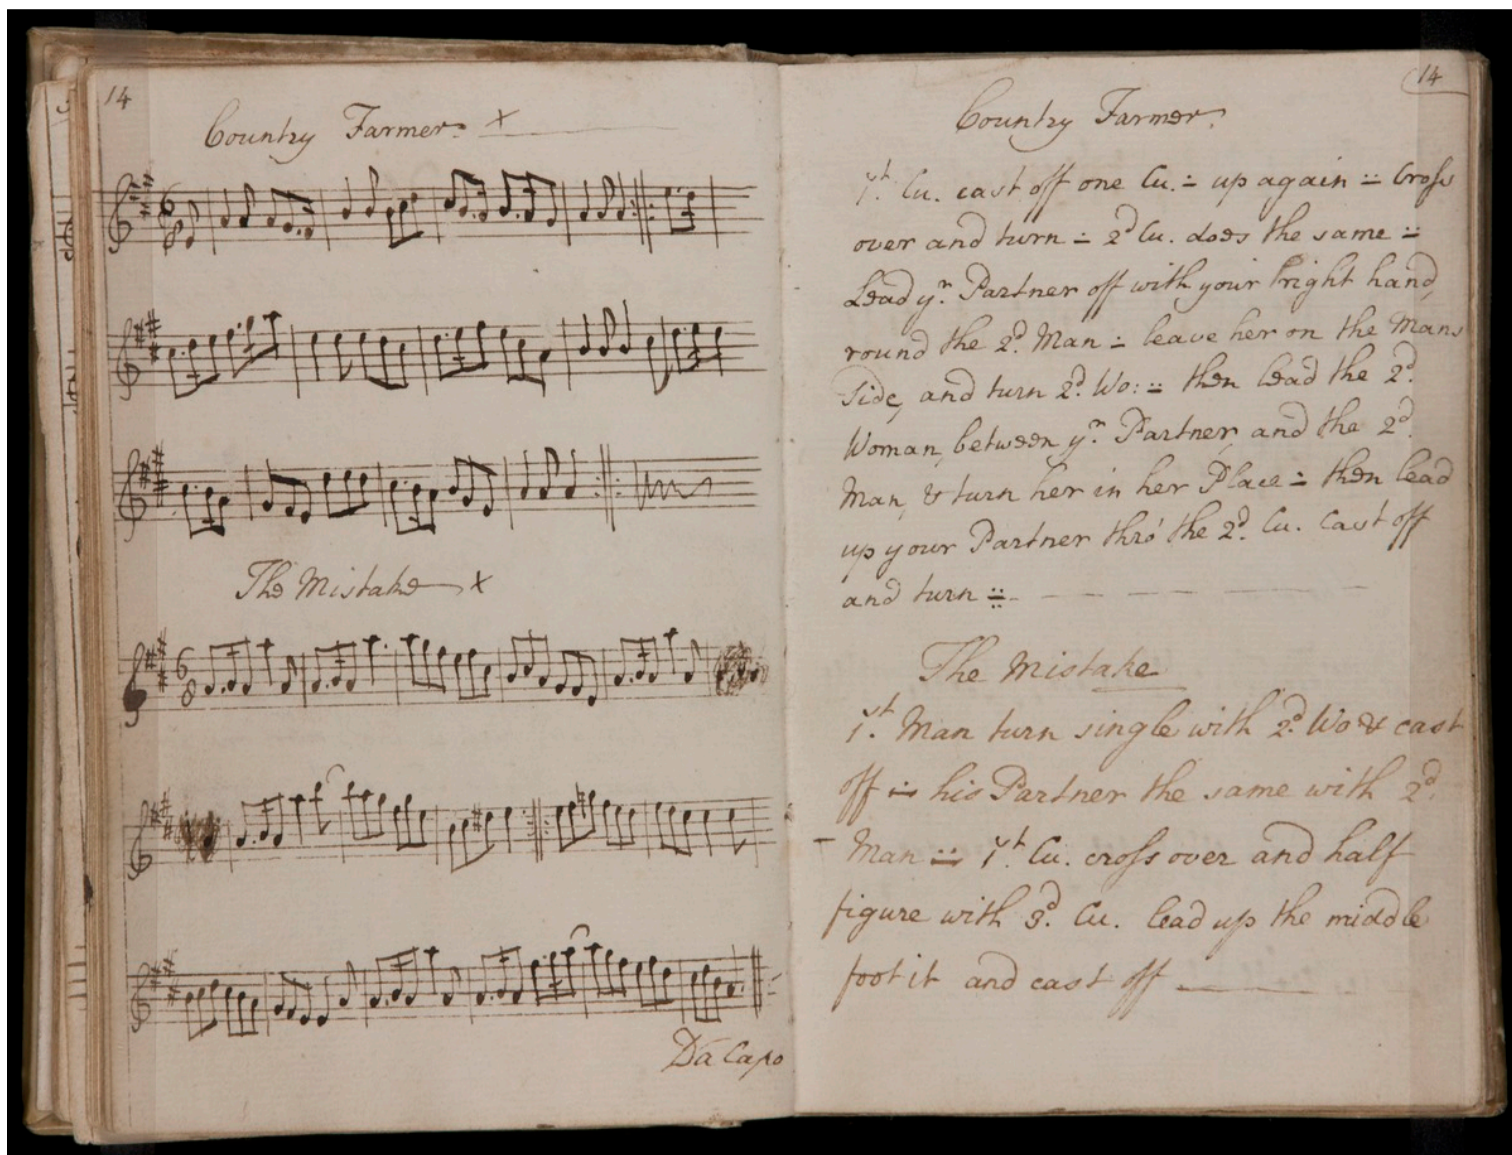 14
Country Farmer. x
The Mistake x
Da Capo
14
Country Farmer.
1st. Cu. cast off one Cu. ∸ up again ∺ Cross
over and turn ∸ 2d Cu. does the same ∺
Lead yr. Partner off with your right hand,
round the 2d. Man ∸ leave her on the Mans
Side, and turn 2d. Wo: ∺ then lead the 2d.
Woman, between yr. Partner, and the 2d.
Man, & turn her in her Place ∸ then lead
up your Partner thró the 2d. Cu. Cast off
and turn ∺
The Mistake
1st. Man turn single with 2d. Wo & cast
off ∺ his Partner the same with 2d.
Man ∺ 1st. Cu. cross over and half
figure with 3d. Cu. lead up the middle
foot it and cast off